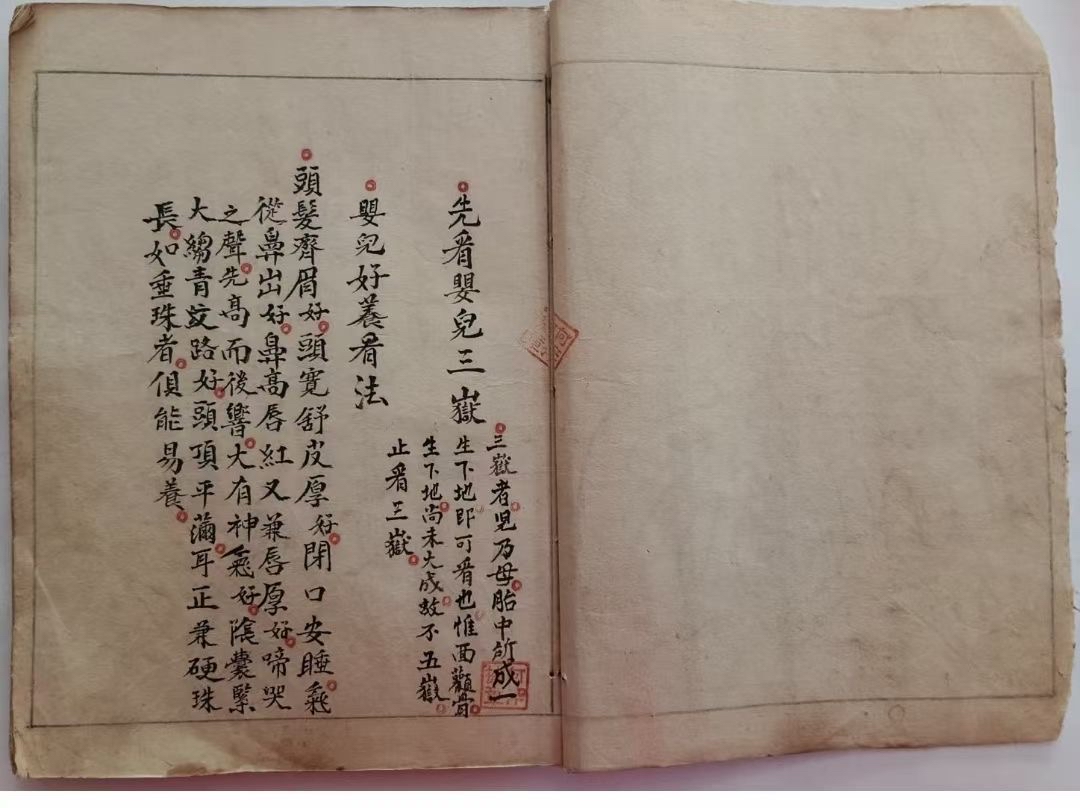 先看嬰兒三嶽
三嶽者児乃母胎中所成一
生下地即可看也惟面顴骨
生下地尚未大成故不五嶽
止看三嶽
嬰兒好養看法
頭髮齊眉好頭寬舒皮厚好閉口安睡氣
從鼻出好鼻高唇紅又兼唇厚好啼哭
之聲先高而後響大有神氣好陰囊緊
大縐青紋路好頭頂平滿耳正兼硬珠
長如垂珠者俱能易養